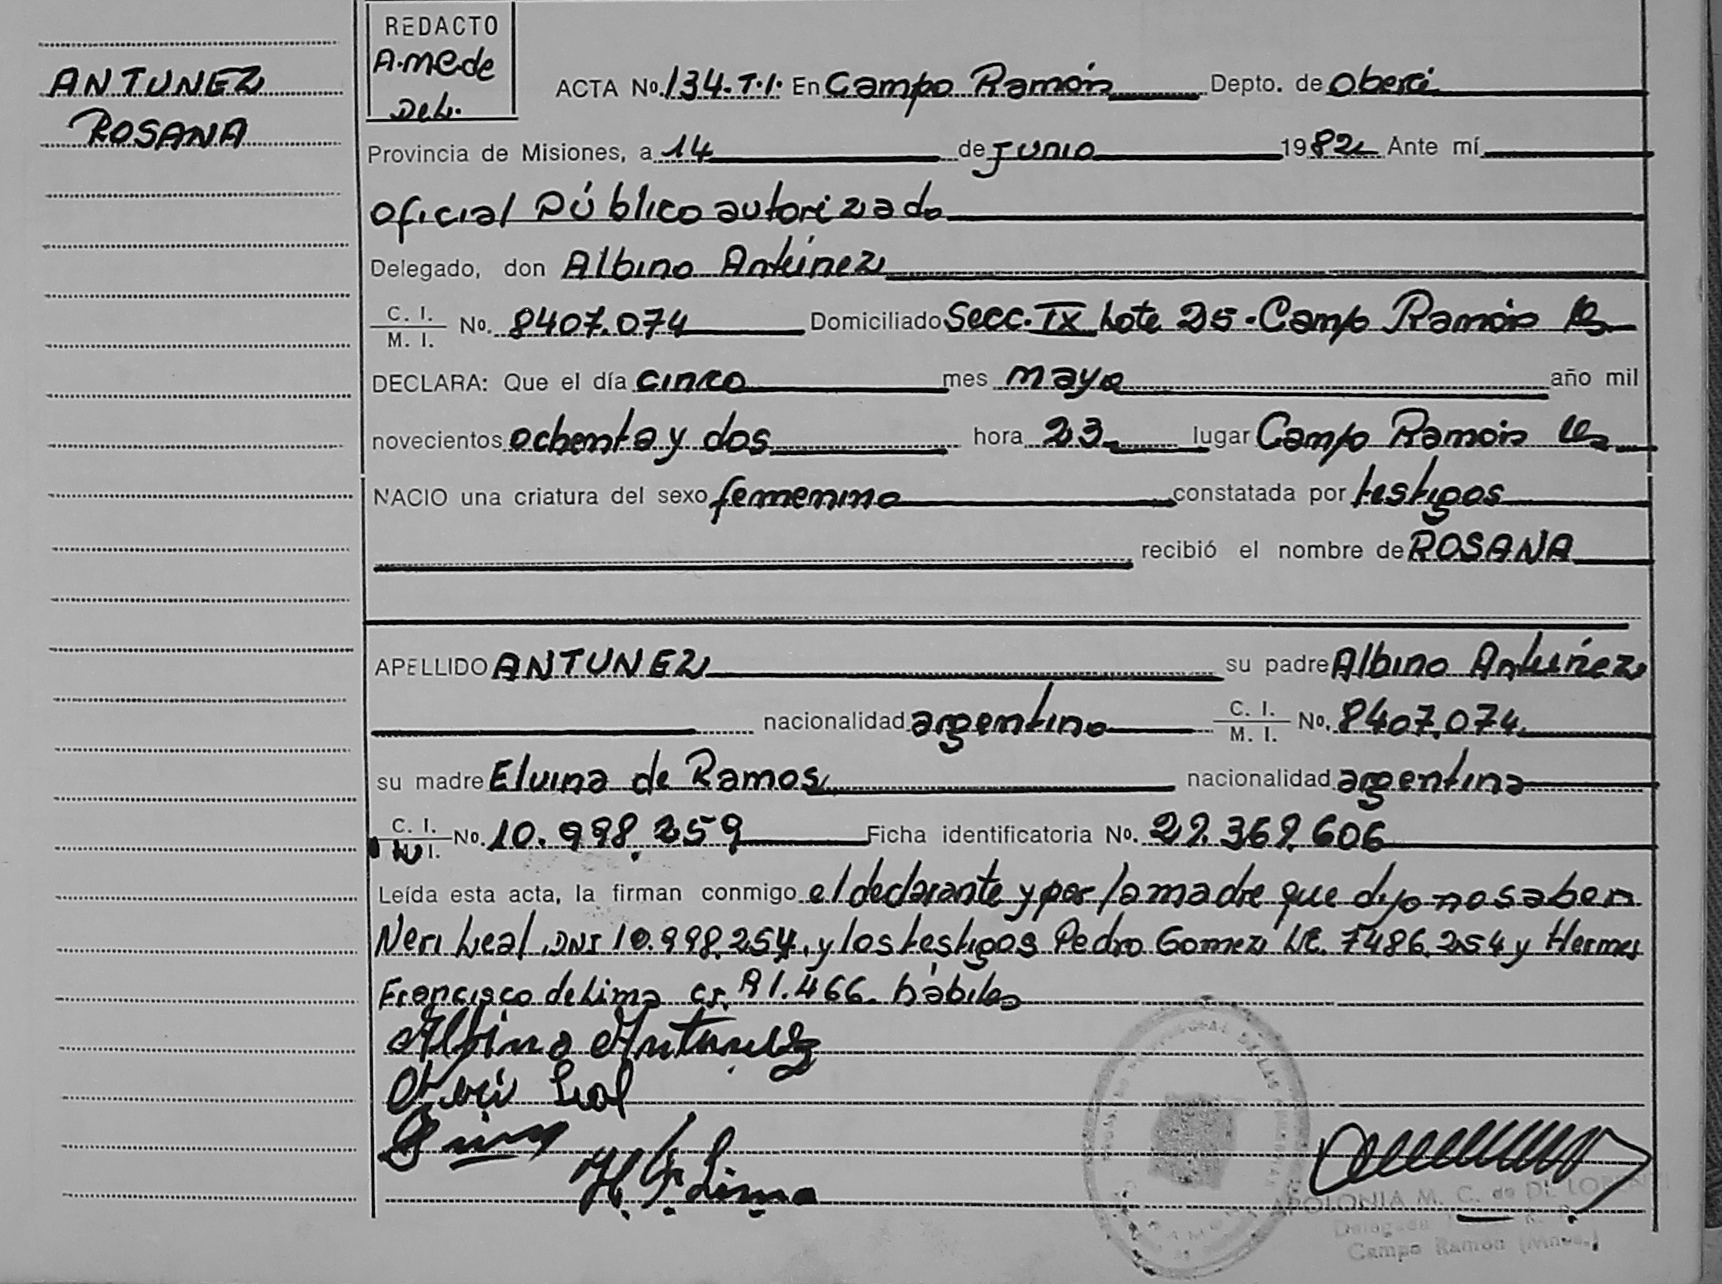 ANTUNEZ
ROSANA
REDACTO
A.M.C.de
DeL.
ACTA No. 134.T.I. En Campo Ramón Depto. de Oberá
Provincia de Misiones, a 14 de junio 1982 Ante mí
oficial Público autorizado
Delegado, don Albino Antúnez
C. I.
M. I. No. 8407.074 Domiciliado Secc. IX Lote 25 - Campo Ramón
DECLARA: Que el día cinco mes mayo año mil
novecientos ochenta y dos hora 23 lugar Campo Ramón
NACIO una criatura del sexo femenino constatada por testigos
recibió el nombre de ROSANA
APELLIDO ANTUNEZ su padre Albino Antúnez
nacionalidad argentino C. I.
M. I. No. 8407.074
su madre Elvina de Ramos nacionalidad argentina
C. I. No. 10.998.259 Ficha identificatoria No. 29.369.606
Leída esta acta, la firman conmigo el declarante y por la madre que dijo no saber
Neri Leal DNI 10.998.254, y los testigos Pedro Gomez LE. 7486.254 y Hermes
Francisco de Lima C.I. 81.466. hábiles
Albino Antunez
Neri Leal
H. F. Lima
APOLONIA M. C. de DE
Delegada
Campo Ramón (Mnes.)